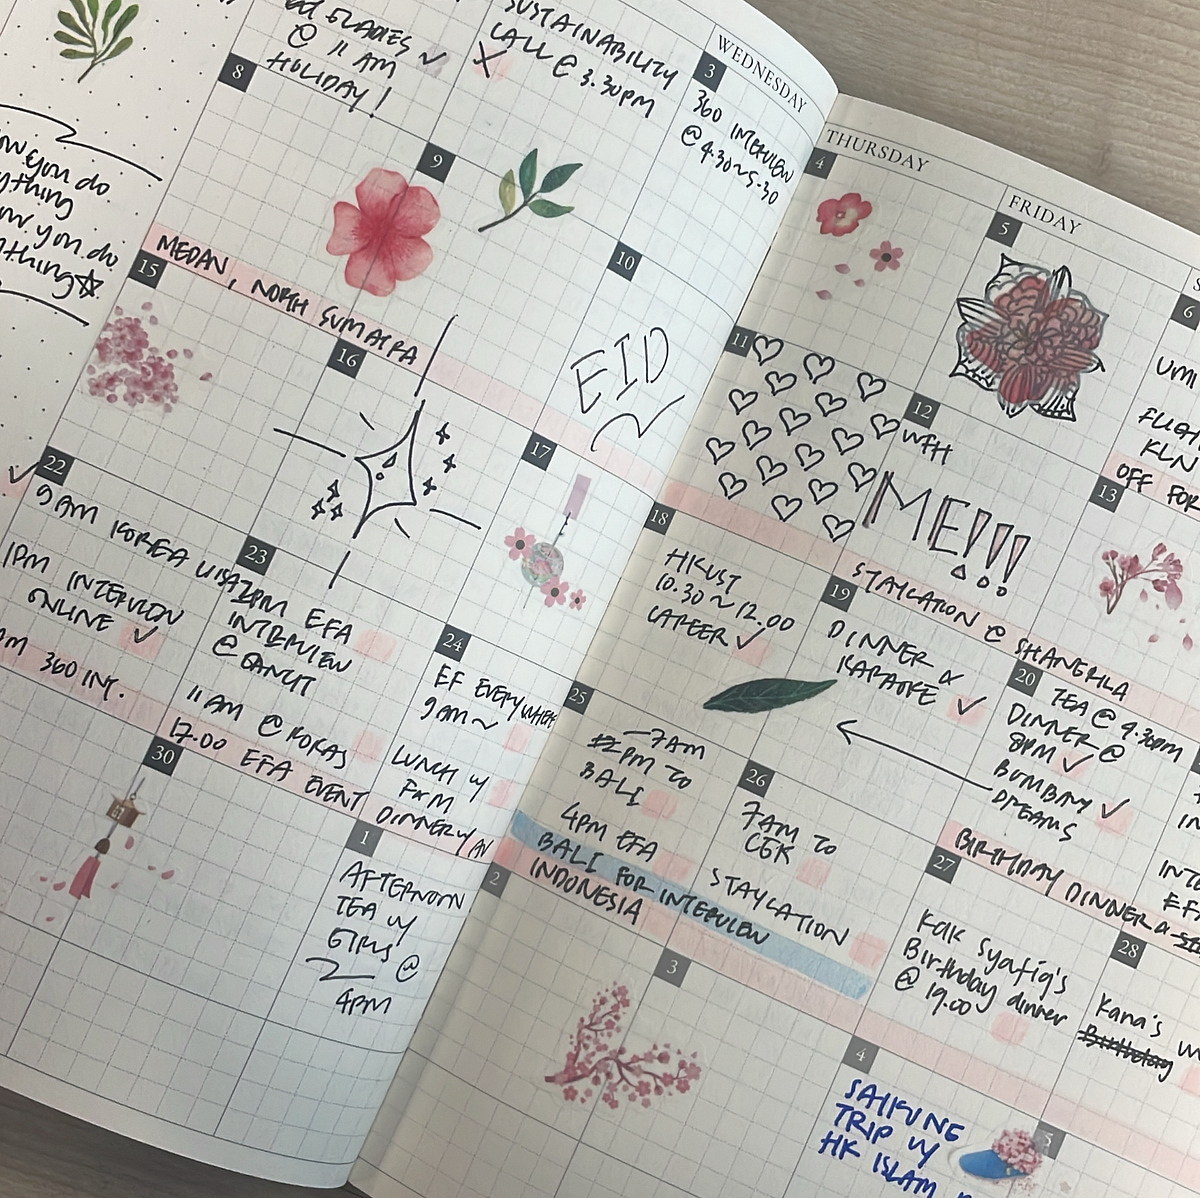 @ 11 AM
HOLIDAY!
SUSTAINABILITY
CALL @ 3.30PM
X
WEDNESDAY
3
360 INTERVIEW
@ 4.30~5.30
THURSDAY
4
FRIDAY
5
6
FLIGHT
KLN
OFF FOR
you do
you do
8
9
10
EID
11
12
WFH
ME!!!
13
MEDAN, NORTH SUMATRA
STAYCATION @ SHANGRILA
15
16
17
18
HKUST
10.30~12.00
CAREER ✓
19
DINNER &
KARAOKE ✓
20
TEA @ 4.30PM
DINNER @
8PM ✓
BOMBAY ✓
DREAMS
BIRTHDAY DINNER
22
9AM KOREA VISA
1PM INTERVIEW
ONLINE ✓
360 INT.
23
2PM EFA
INTERVIEW
11AM @ KOKAS
17.00 EFA EVENT
24
EF EVERYWHERE
9AM~
LUNCH w/
DINNER w/
25
7AM
PM TO
BALI
4PM EFA
BALI FOR INTERVIEW
INDONESIA
26
7AM TO
CGK
STAYCATION
27
Kak Syafiq's
Birthday dinner
@ 19.00
28
Kana's
Birthday
30
1
AFTERNOON
TEA w/
GIRLS @
4PM
2
3
4
SAIKUNG
TRIP w/
HK ISLAM
5